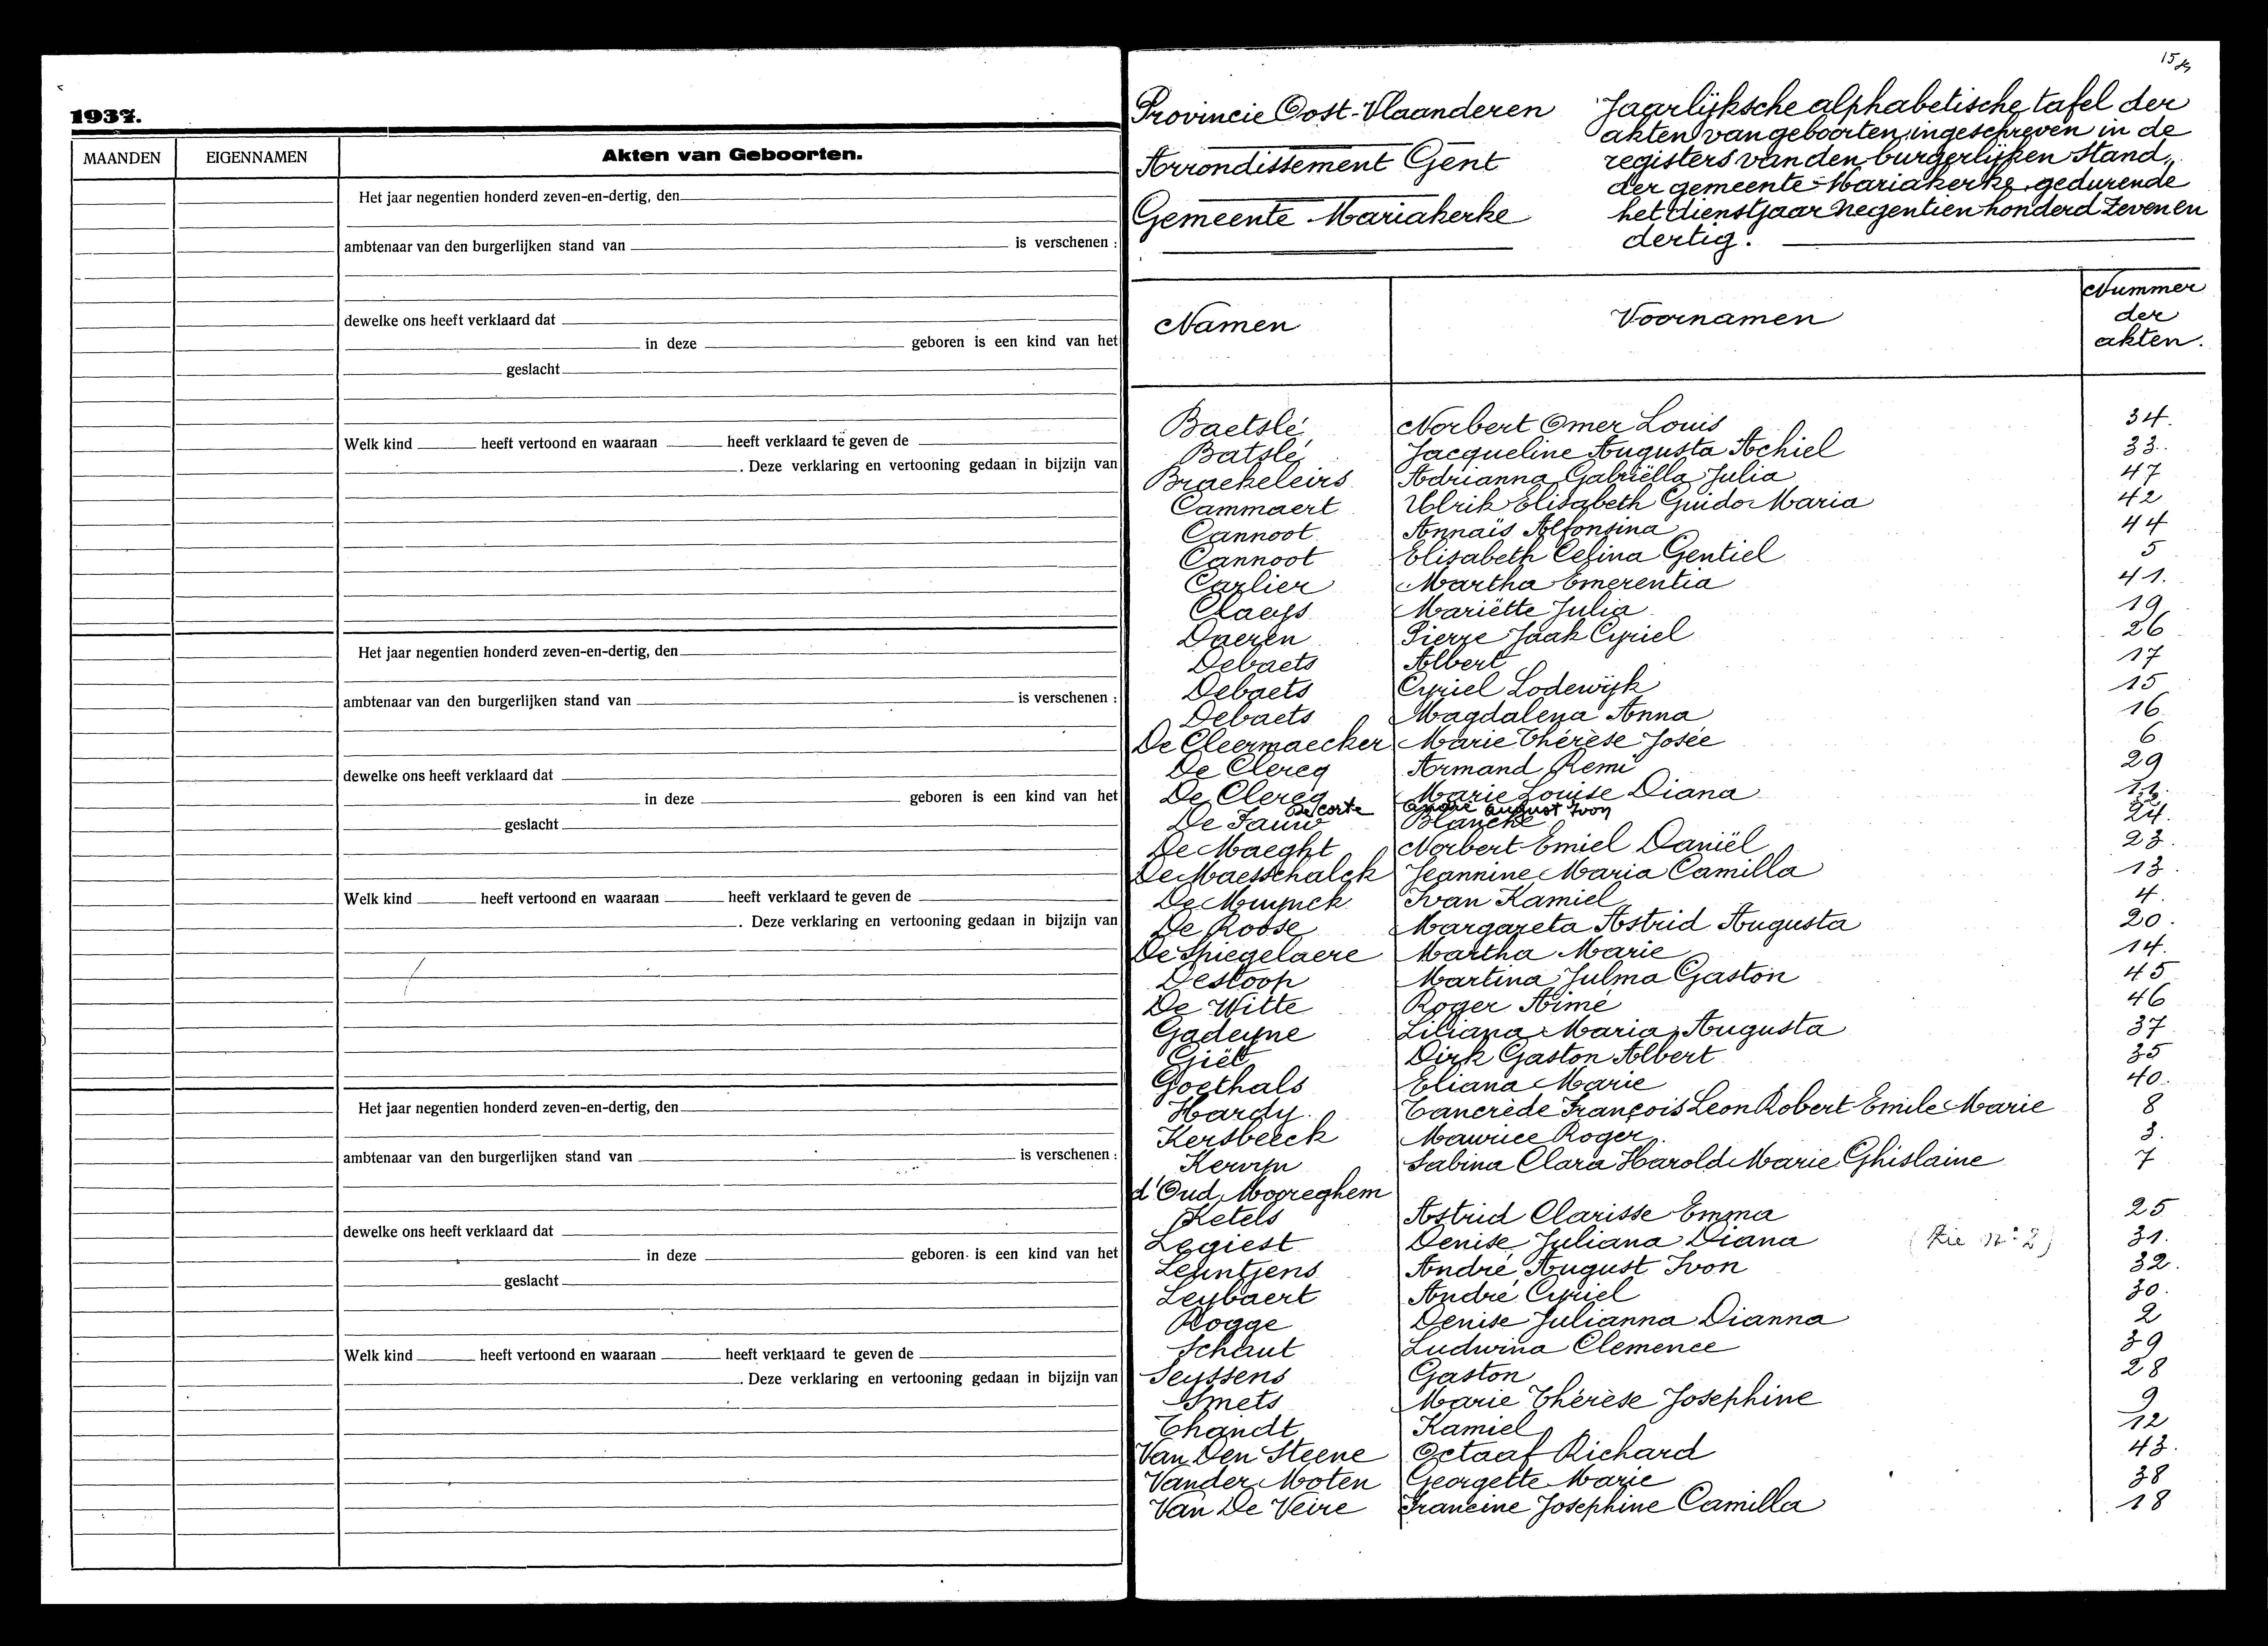 1937.
MAANDEN EIGENNAMEN Akten van Geboorten.
Het jaar negentien honderd zeven-en-dertig, den
ambtenaar van den burgerlijken stand van is verschenen :
dewelke ons heeft verklaard dat
in deze geboren is een kind van het
geslacht
Welk kind heeft vertoond en waaraan heeft verklaard te geven de
. Deze verklaring en vertooning gedaan in bijzijn van
Het jaar negentien honderd zeven-en-dertig, den
ambtenaar van den burgerlijken stand van is verschenen :
dewelke ons heeft verklaard dat
in deze geboren is een kind van het
geslacht
Welk kind heeft vertoond en waaraan heeft verklaard te geven de
. Deze verklaring en vertooning gedaan in bijzijn van
Het jaar negentien honderd zeven-en-dertig, den
ambtenaar van den burgerlijken stand van is verschenen :
dewelke ons heeft verklaard dat
in deze geboren is een kind van het
geslacht
Welk kind heeft vertoond en waaraan heeft verklaard te geven de
. Deze verklaring en vertooning gedaan in bijzijn van
15
Provincie Oost-Vlaanderen
Arrondissement Gent
Gemeente Mariakerke
Jaarlijksche alphabetische tafel der
akten van geboorten, ingeschreven in de
registers van den burgerlijken stand,
der gemeente Mariakerke, gedurende
het dienstjaar negentien honderd zeven en
dertig.
Namen Voornamen Nummer der akten.
Baetslé Norbert Omer Louis 34.
Batslé Jacqueline Augusta Achiel 33.
Braekeleirs Adrianna Gabriëlla Julia 47
Cammaert Ulrik Elisabeth Guido Maria 42
Cannoot Annaïs Alfonsina 44
Cannoot Elisabeth Celina Gentiel 5
Carlier Martha Emerentia 41.
Claeys Mariëtte Julia 19
Daeren Pierre Jaak Cyriel 26
Debaets Albert 17
Debaets Cyriel Lodewijk 15
Debaets Magdalena Anna 16
De Cleermaecker Marie Thérèse Josée 6
De Clercq Armand Remi 29
De Clercq Marie Louise Diana
De corte André August Ivon
De Fauw Blanche 24.
De Maeght Norbert Emiel Daniël 23.
De Maesschalck Jeannine Maria Camilla 13.
De Muynck Ivan Kamiel 4.
De Roose Margareta Astrid Augusta 20.
De Spiegelaere Martha Marie 14.
Destoop Martina Julma Gaston 45
De Witte Roger Aimé 46
Gadeyne Liliana Maria Augusta 37
Giët Dirk Gaston Albert 35
Goethals Eliana Marie 40.
Hardy Tancrède François Leon Robert Emile Marie 8
Kersbeeck Maurice Roger 3.
Kervyn Sabina Clara Harold Marie Ghislaine 7
d'Oud Mooreghem
Ketels Astrid Clarisse Emma 25
Legiest Denise Juliana Diana (Zie n° 2) 31.
Leuntjens André August Ivon 32.
Leybaert André Cyriel 30.
Rogge Denise Julianna Dianna 2
Schaut Ludwina Clemence 39
Seyssens Gaston 28
Smets Marie Thérèse Josephine 9
Thandt Kamiel 12
Van Den Steene Octaaf Richard 43.
Vander Moten Georgette Marie 38
Van De Veire Francine Josephine Camilla 18